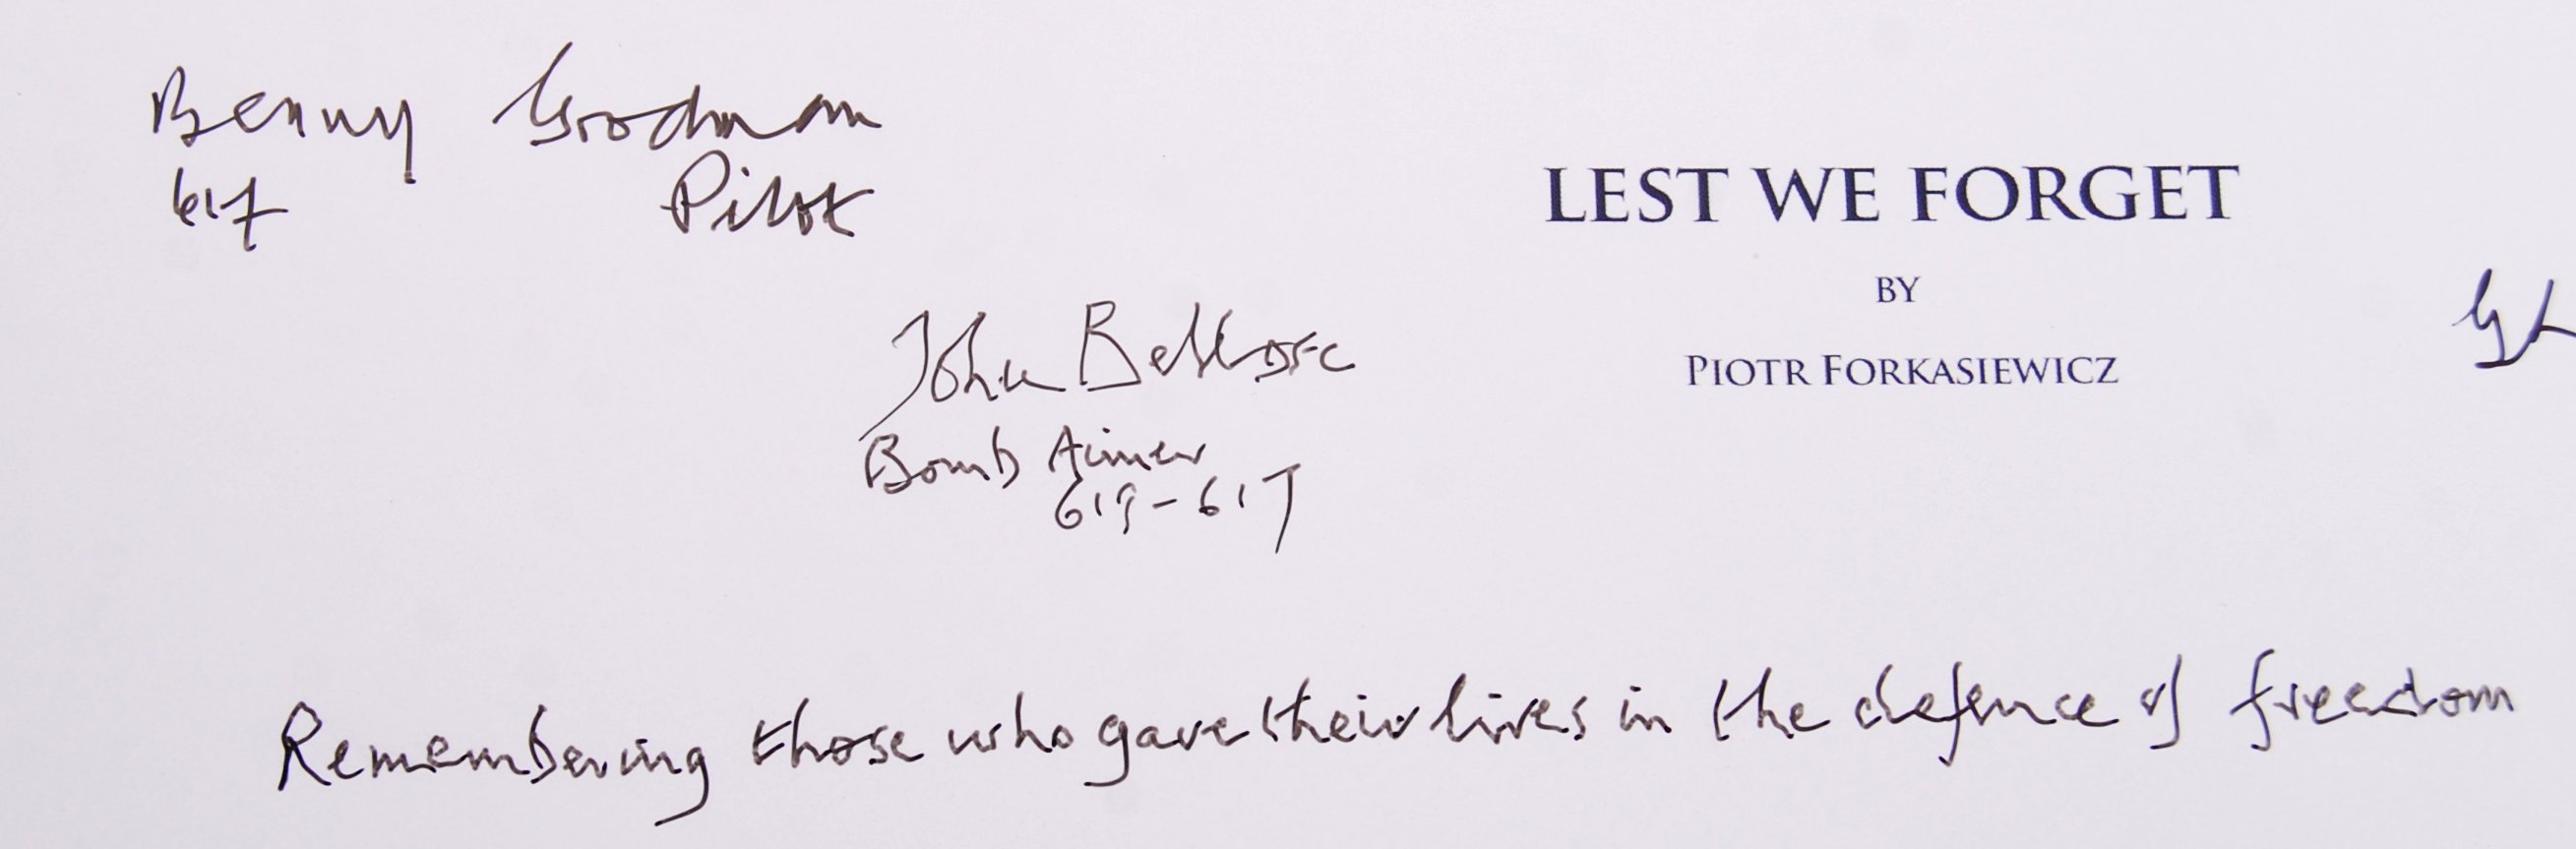 Benny Goodman
617 Pilot
LEST WE FORGET
BY
PIOTR FORKASIEWICZ
John Bellrose
Bomb Aimer
619-617
Remembering those who gave their lives in the defence of freedom